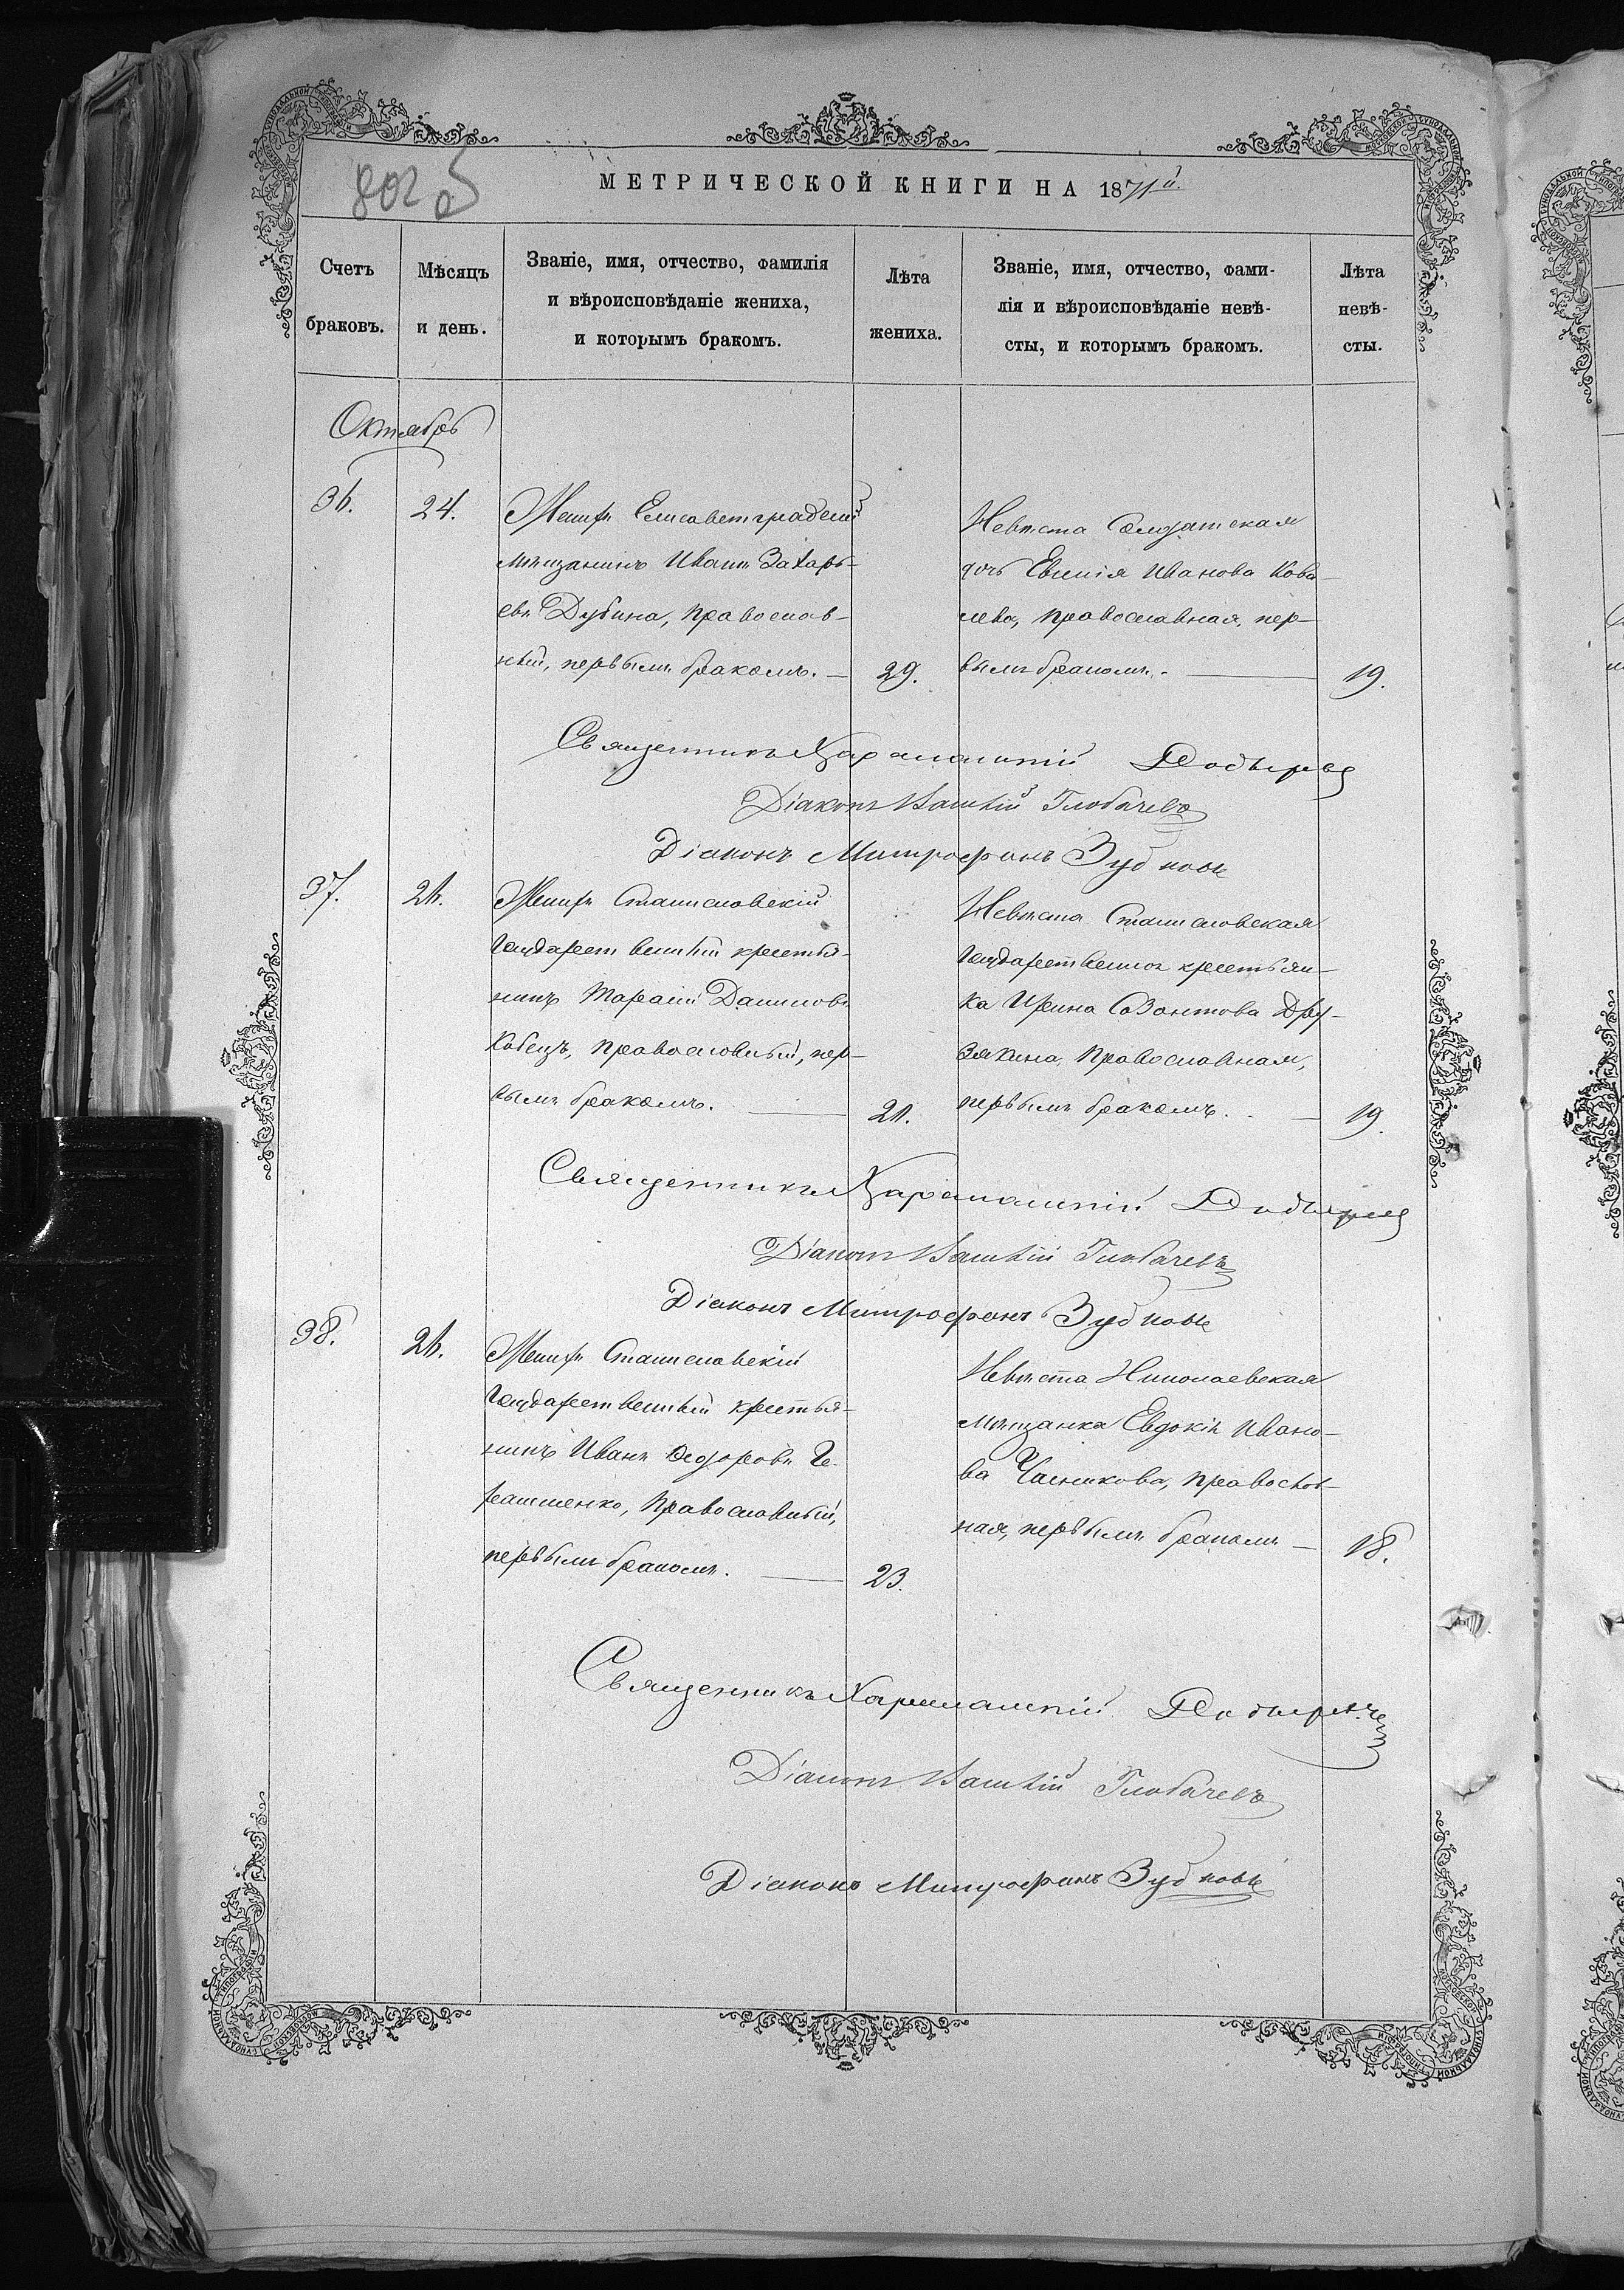 802 об
МЕТРИЧЕСКОЙ КНИГИ НА 1871й.
Счетъ браковъ.
Мѣсяцъ и день.
Званіе, имя, отчество, фамилія
и вѣроисповѣданіе жениха,
и которымъ бракомъ.
Лѣта жениха.
Званіе, имя, отчество, фами-
лія и вѣроисповѣданіе невѣ-
сты, и которымъ бракомъ.
Лѣта невѣ-
сты.
Октябрь
36.
24.
Женихъ Елисаветградскій
мѣщанинъ Иванъ Захарь-
евъ Дубина, православ-
ный, первымъ бракомъ.
29.
Невѣста Солдатская
дочь Евгенія Иванова Кова-
лева, православная, пер-
вымъ бракомъ.
19.
Священникъ Харалампій
Діаконъ Василій Глобачевъ
Діаконъ Митрофанъ Зубковъ
37.
24.
Женихъ Станиславскій
Государственный крестья-
нинъ Тарасій Даниловъ
Кобецъ, православный, пер-
вымъ бракомъ.
21.
Невѣста Станиславская
Государственная крестьян-
ка Ирина Созонтова Дру-
зякина, Православная,
первымъ бракомъ.
19.
Священникъ Харалампій
Діаконъ Василій Глобачевъ
Діаконъ Митрофанъ Зубковъ
38.
24.
Женихъ Станиславскій
Государственный крестья-
нинъ Иванъ Ѳедоровъ Ге-
ращенко, Православный,
первымъ бракомъ.
23.
Невѣста Николаевская
мѣщанка Евдокія Ивано-
ва Часникова, православ-
ная, первымъ бракомъ
18.
Священникъ Харалампій
Діаконъ Василій Глобачевъ
Діаконъ Митрофанъ Зубковъ